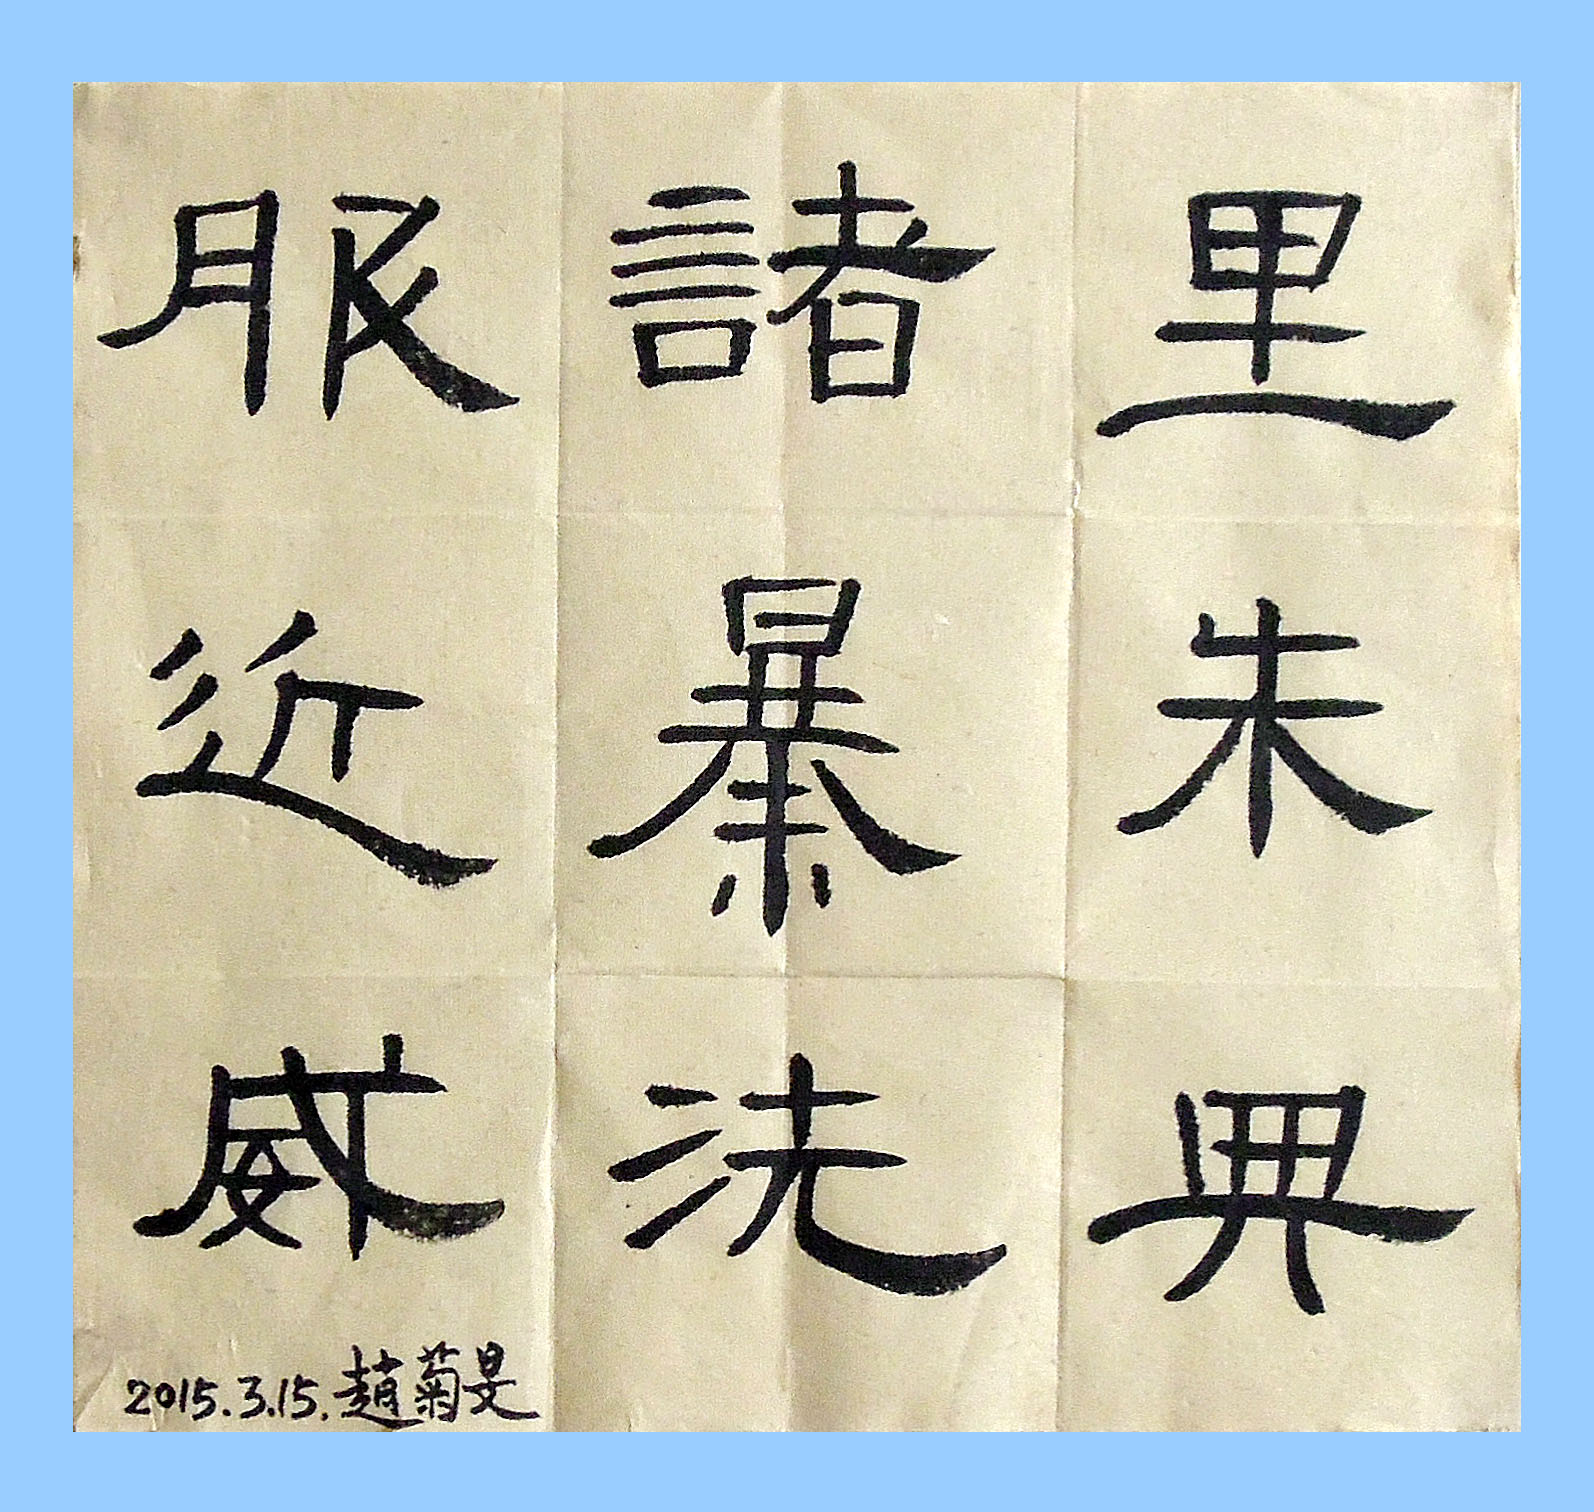 里朱典
諸暴洗
服近威
2015.3.15.趙菊旻